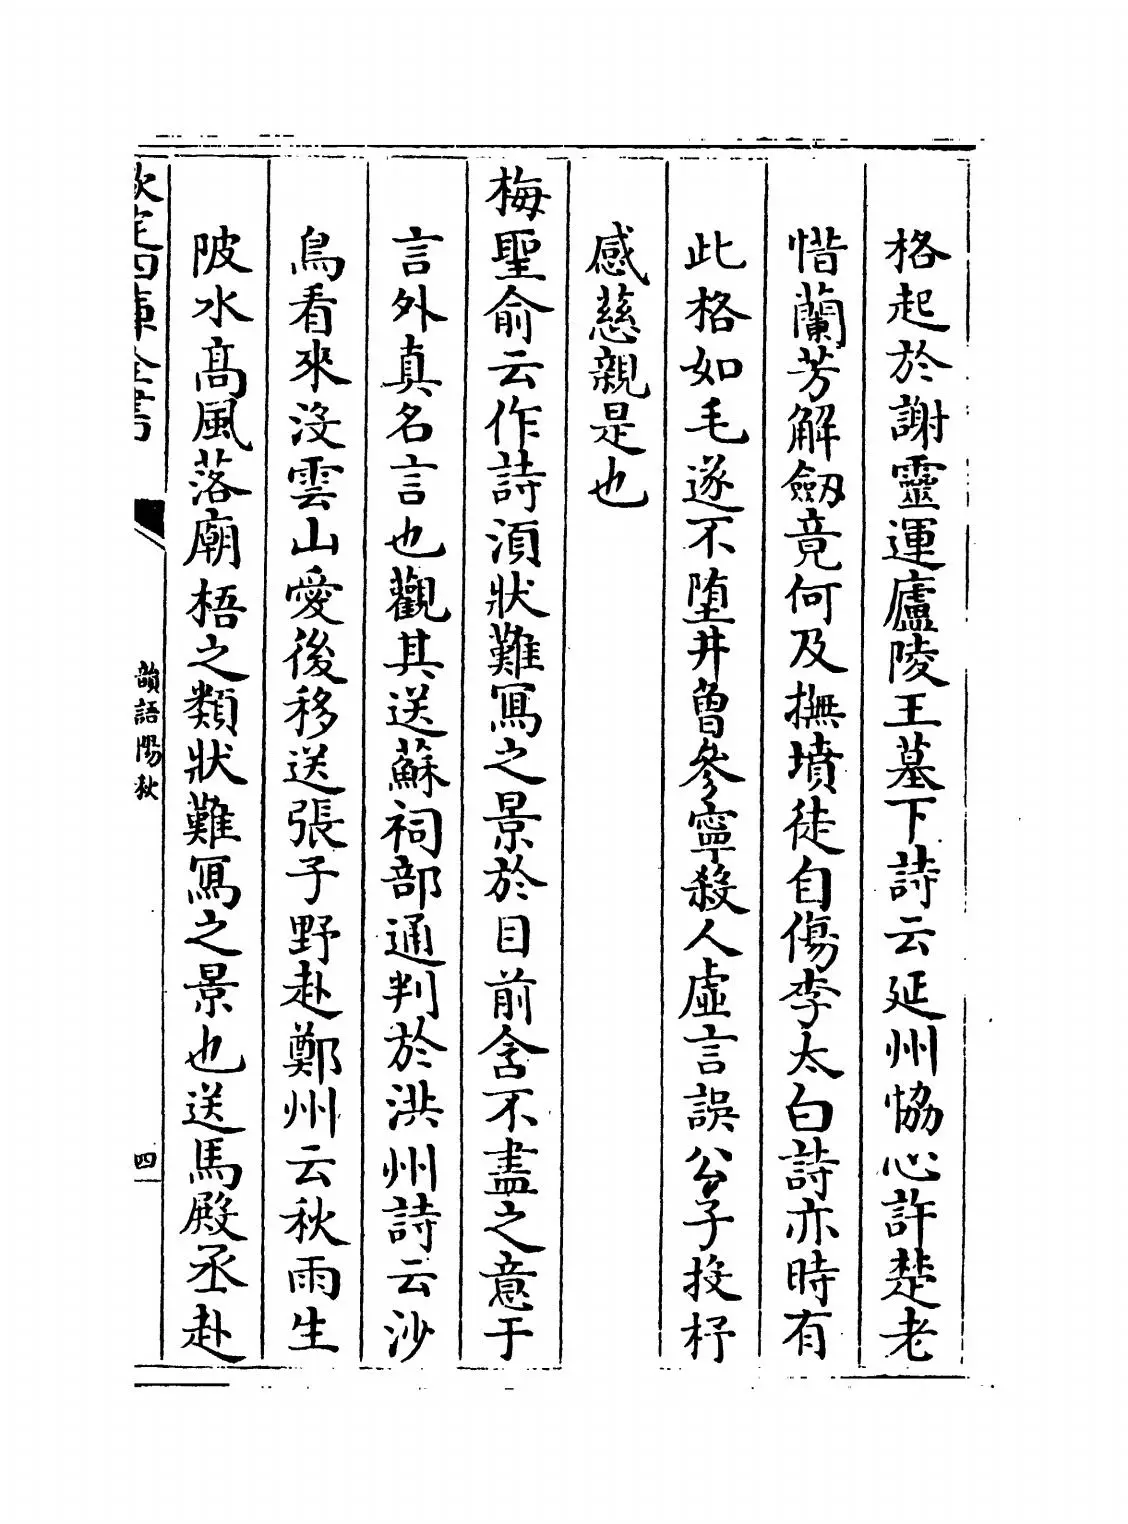 格起於謝靈運廬陵王墓下詩云延州恊心許楚老
惜蘭芳解劔竟何及撫墳徒自傷李太白詩亦時有
此格如毛遂不墮井曽參寧殺人虛言誤公子投杼
感慈親是也
梅聖俞云作詩湏狀難冩之景於目前含不盡之意于
言外真名言也觀其送蘇祠部通判於洪州詩云沙
鳥看來没雲山愛後移送張子野赴鄭州云秋雨生
陂水髙風落廟梧之類狀難冩之景也送馬殿丞赴
欽定四庫全書
韻語陽秋
四